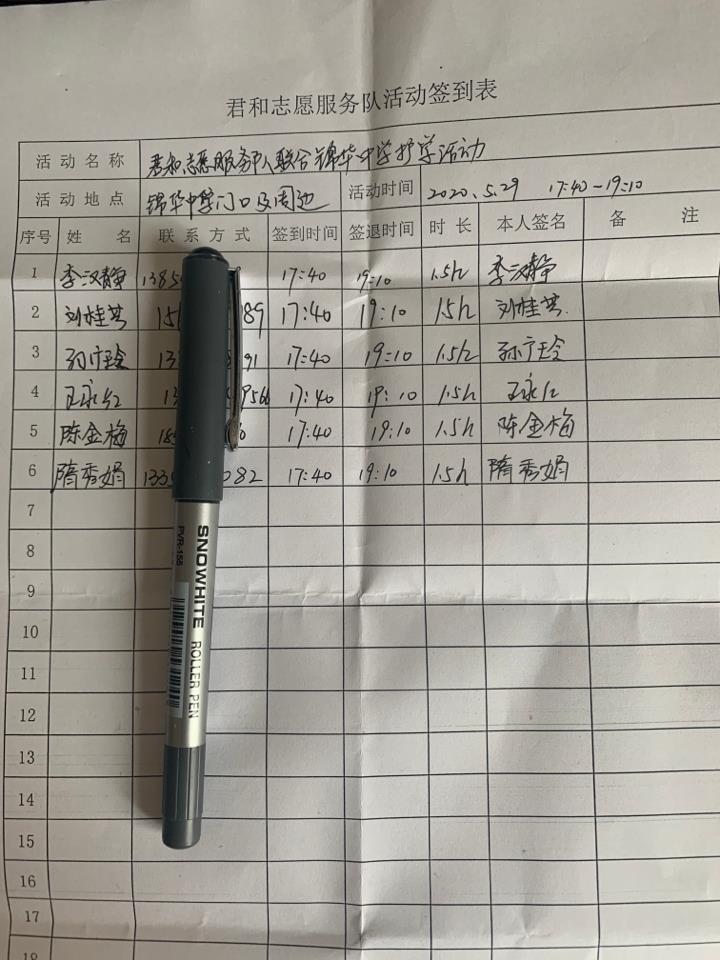 君和志愿服务队活动签到表
活动名称 君和志愿服务队联合锦华中学护学活动
活动地点 锦华中学门口及周边 活动时间 2020.5.29 17:40-19:10
序号 姓名 联系方式 签到时间 签退时间 时长 本人签名 备注
1 李汉静 1385 17:40 19:10 1.5h 李汉静
2 刘桂芸 15 89 17:40 19:10 1.5h 刘桂芸
3 孙广玲 13 91 17:40 19:10 1.5h 孙广玲
4 王永红 13 9566 17:40 19:10 1.5h 王永红
5 陈金梅 18 6 17:40 19:10 1.5h 陈金梅
6 隋秀娟 133 082 17:40 19:10 1.5h 隋秀娟
7
8
9
10
11
12
13
14
15
16
17
18
SNOWHITE ROLLER PEN
PVR-155